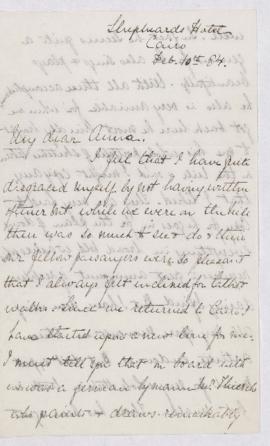 Shepheards Hotel
Cairo
Feb. 10th 84.
My dear Anna.
I feel that I have quite
disgraced myself by not having written
oftener but, while we were on the Nile
there was so much to see & do & then
our fellow passengers were so pleasant
that I always felt inclined for talk or
walks & since we returned to Cairo I
have started upon a new line for me.
I must tell you that on board with
us was a german gymann
who paints & draws remarkably